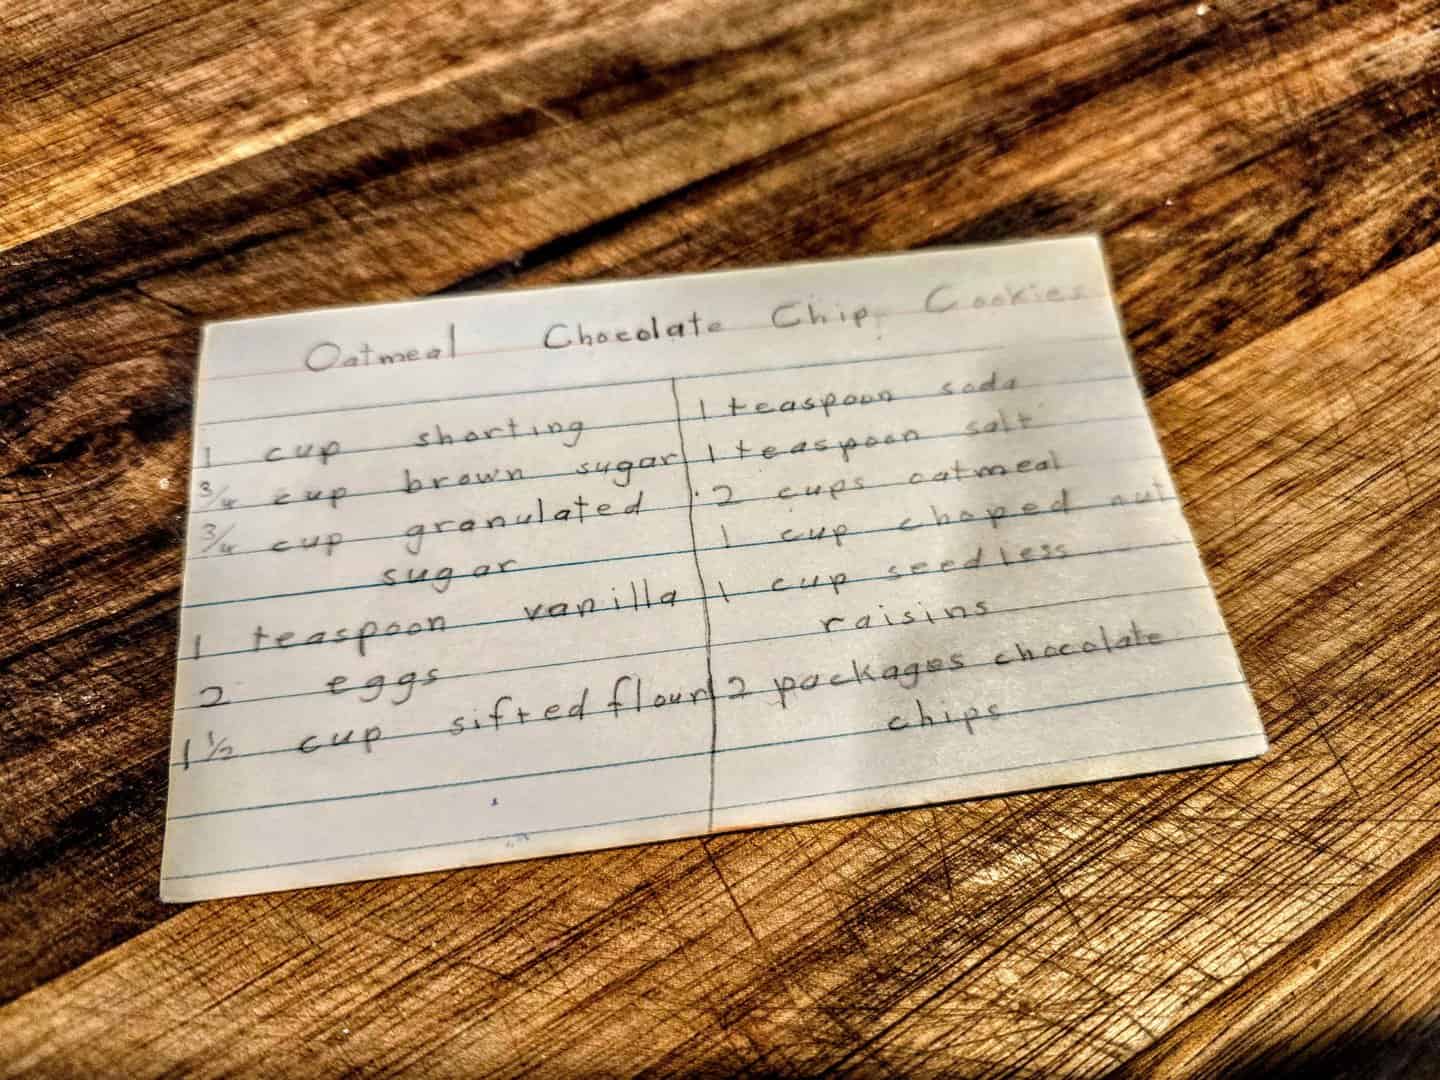 Oatmeal Chocolate Chip Cookies
1 cup shorting
3/4 cup brown sugar
3/4 cup granulated
sugar
1 teaspoon vanilla
2 eggs
1 1/2 cup sifted flour
1 teaspoon soda
1 teaspoon salt
2 cups oatmeal
1 cup chaped nut
1 cup seedless
raisins
2 packages chocolate
chips